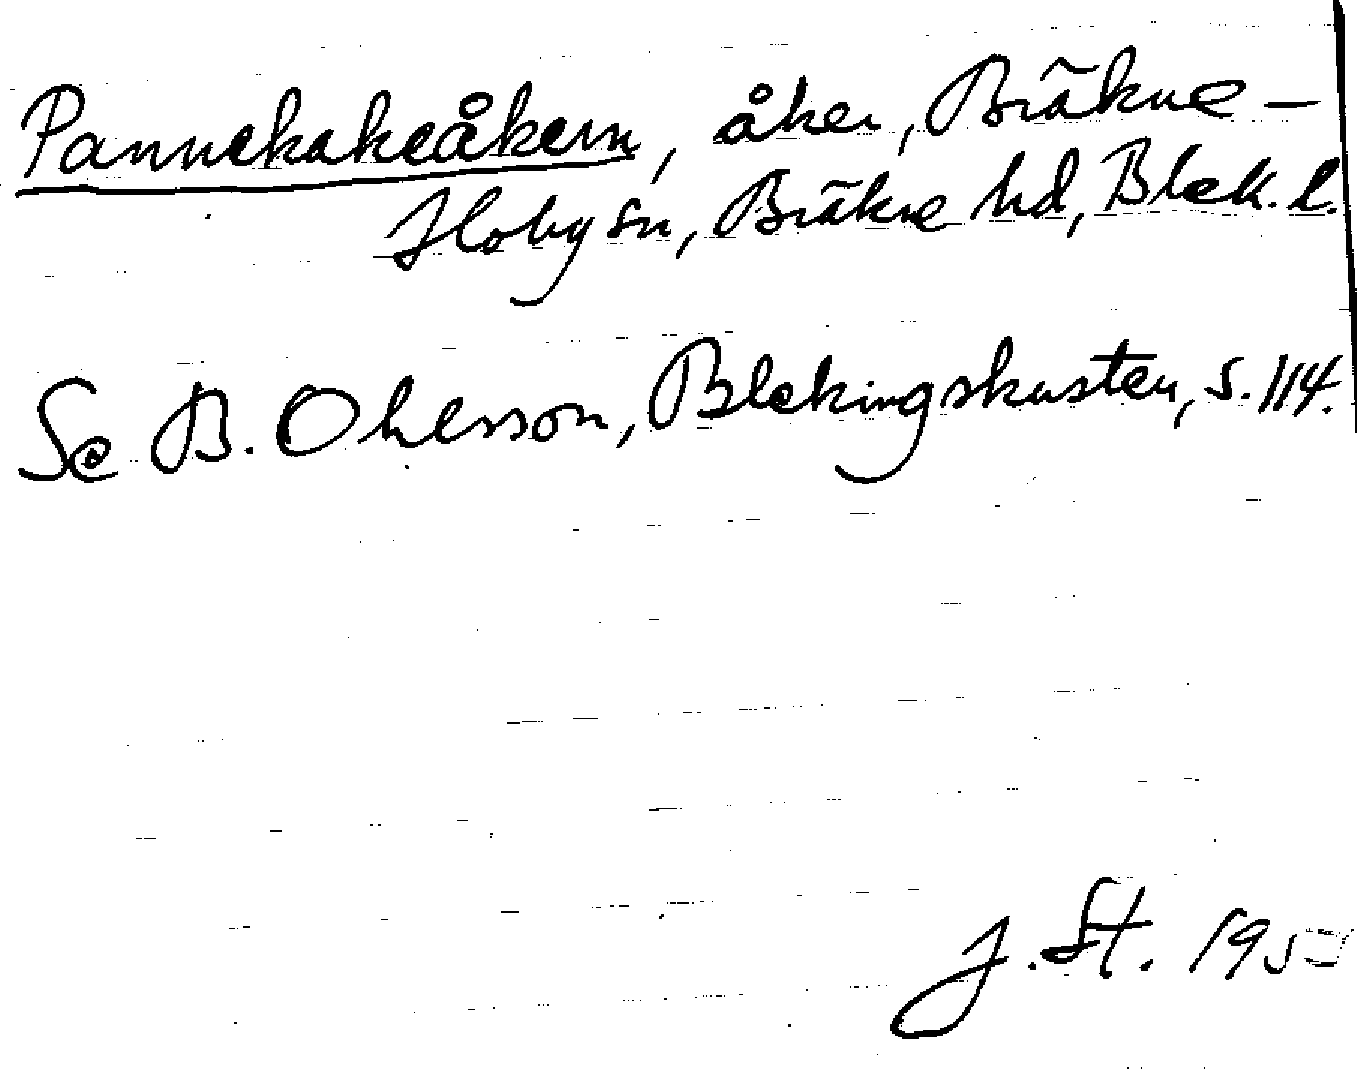 Pannekakeåkern, åker, Bräkne-
Hoby sn, Bräkne hd, Blek. l.
Se B. Ohlsson, Blekingskusten, s. 114.
J. St.